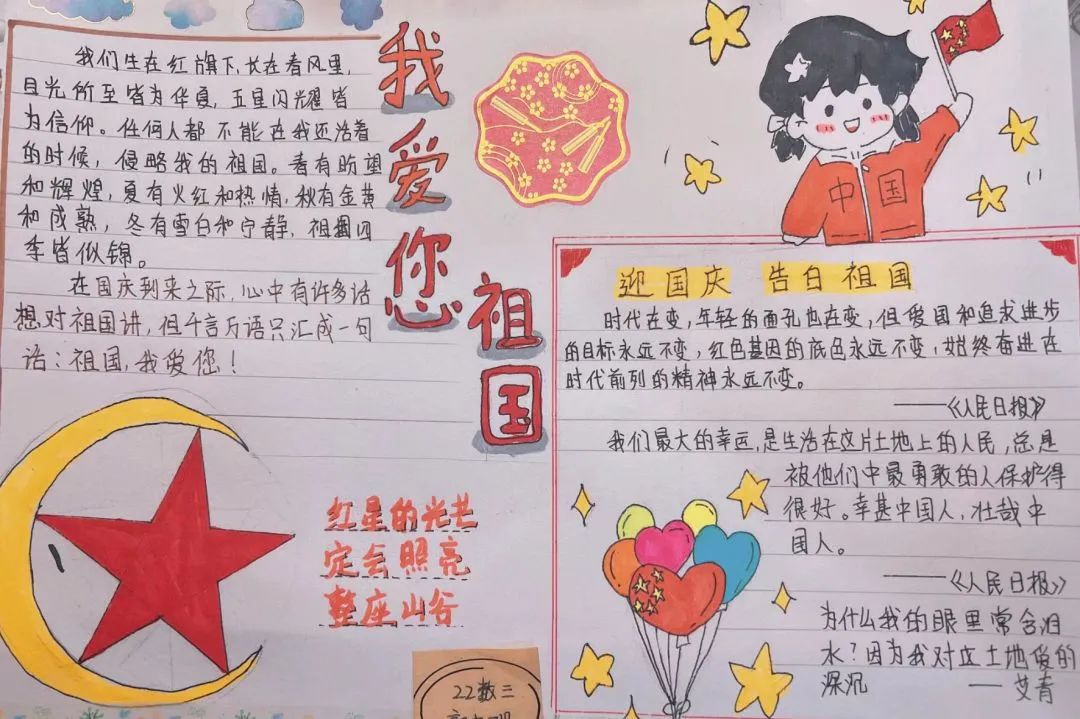 我们生在红旗下，长在春风里，
目光所至皆为华夏，五星闪耀皆
为信仰。任何人都不能在我还活着
的时候，侵略我的祖国。春有盼望
和辉煌，夏有火红和热情，秋有金黄
和成熟，冬有雪白和宁静，祖国四
季皆似锦。
在国庆到来之际，心中有许多话
想对祖国讲，但千言万语只汇成一句
话：祖国，我爱您！
我爱您
祖国
中国
迎国庆 告白祖国
时代在变，年轻的面孔也在变，但爱国和追求进步
的目标永远不变，红色基因的底色永远不变，始终奋进在
时代前列的精神永远不变。
——《人民日报》
我们最大的幸运，是生活在这片土地上的人民，总是
被他们中最勇敢的人保护得
很好。幸甚中国人，壮哉中
国人。
——《人民日报》
为什么我的眼里常含泪
水？因为我对这土地爱的
深沉 — 艾青
红星的光芒
定会照亮
整座山谷
22数三